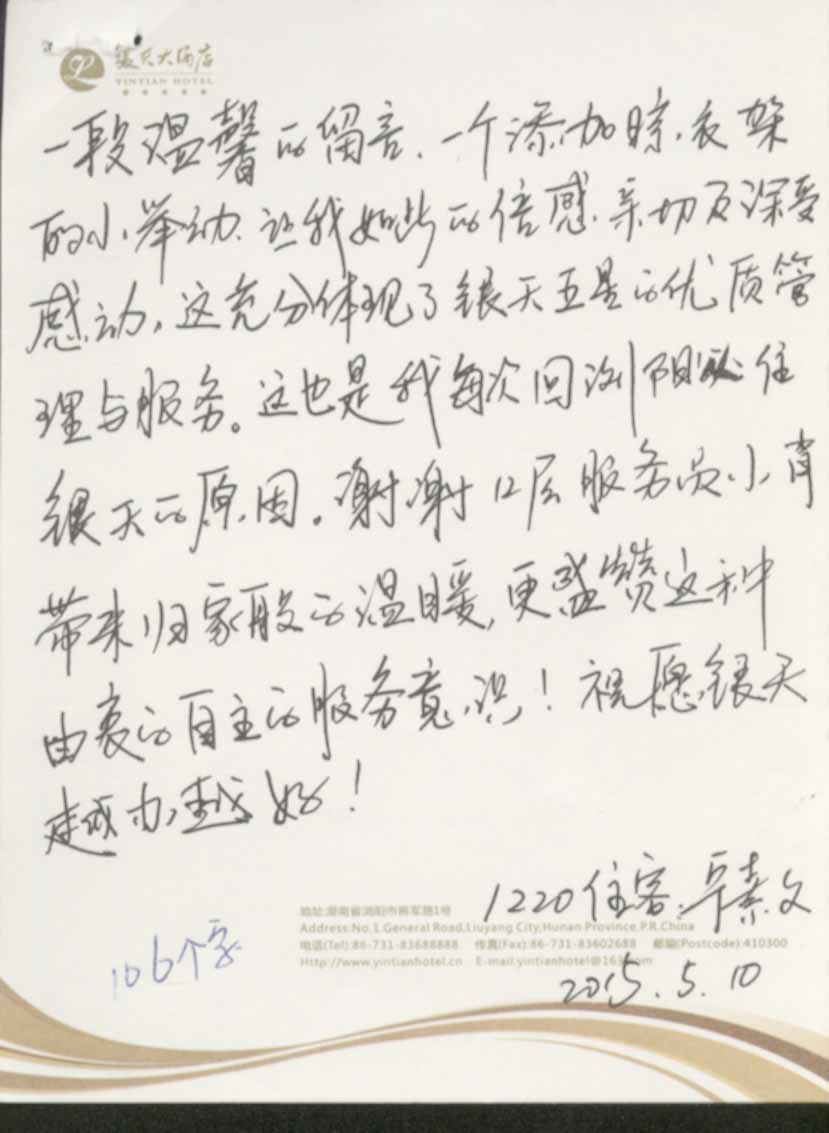 银天大酒店
YINTIAN HOTEL
一段温馨的留言、一个添加晾衣架
的小举动、让我如此的倍感亲切及深受
感动，这充分体现了银天五星的优质管
理与服务。这也是我每次回浏阳必住
银天的原因。谢谢12层服务员小肖
带来归家般的温暖，更盛赞这种
由衷的自主的服务意识！祝愿银天
越办越好！
1220住客：素文
2015.5.10
106个字
地址:湖南省浏阳市将军路1号
Address:No.1 General Road,Liuyang City,Hunan Province,P.R.China
电话(Tel):86-731-83688888 传真(Fax):86-731-83602688 邮编(Postcode):410300
Http://www.yintianhotel.cn E-mail:yintianhotel@163.com